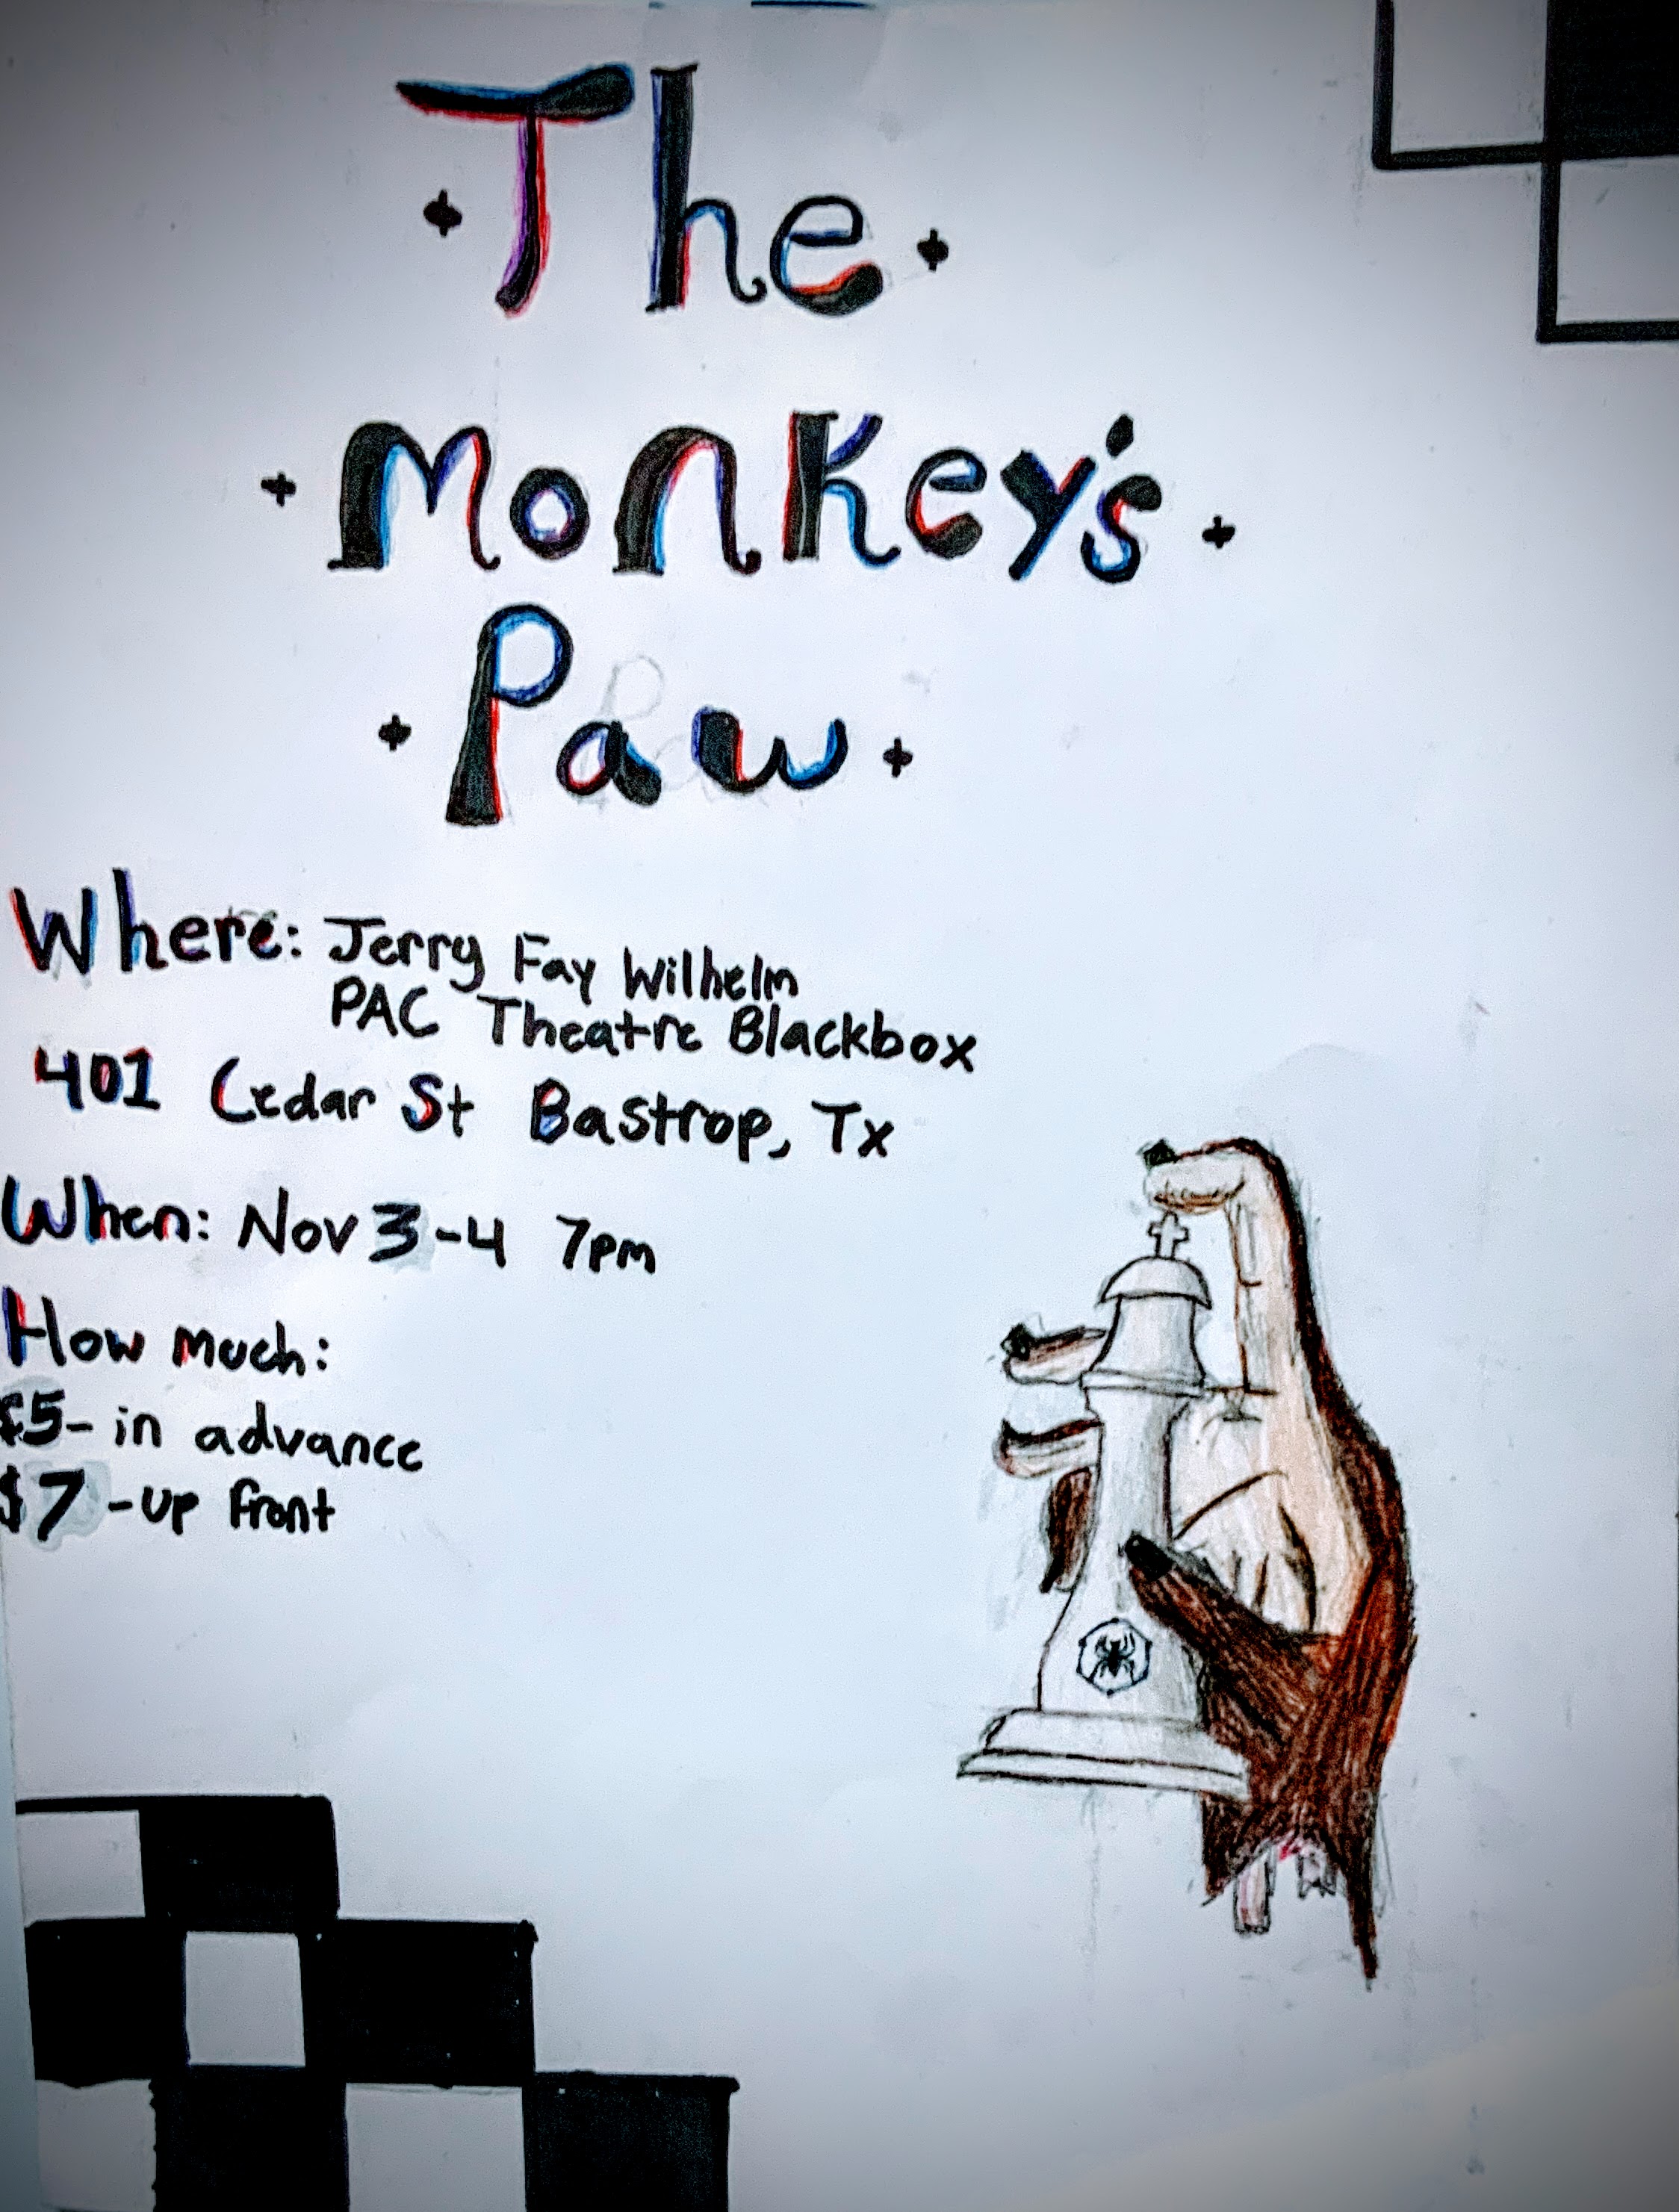 The
Monkey's
Paw
Where: Jerry Fay Wilhelm
PAC Theatre Blackbox
401 Cedar St Bastrop, Tx
When: Nov 3-4 7pm
How much:
$5- in advance
$7-up front